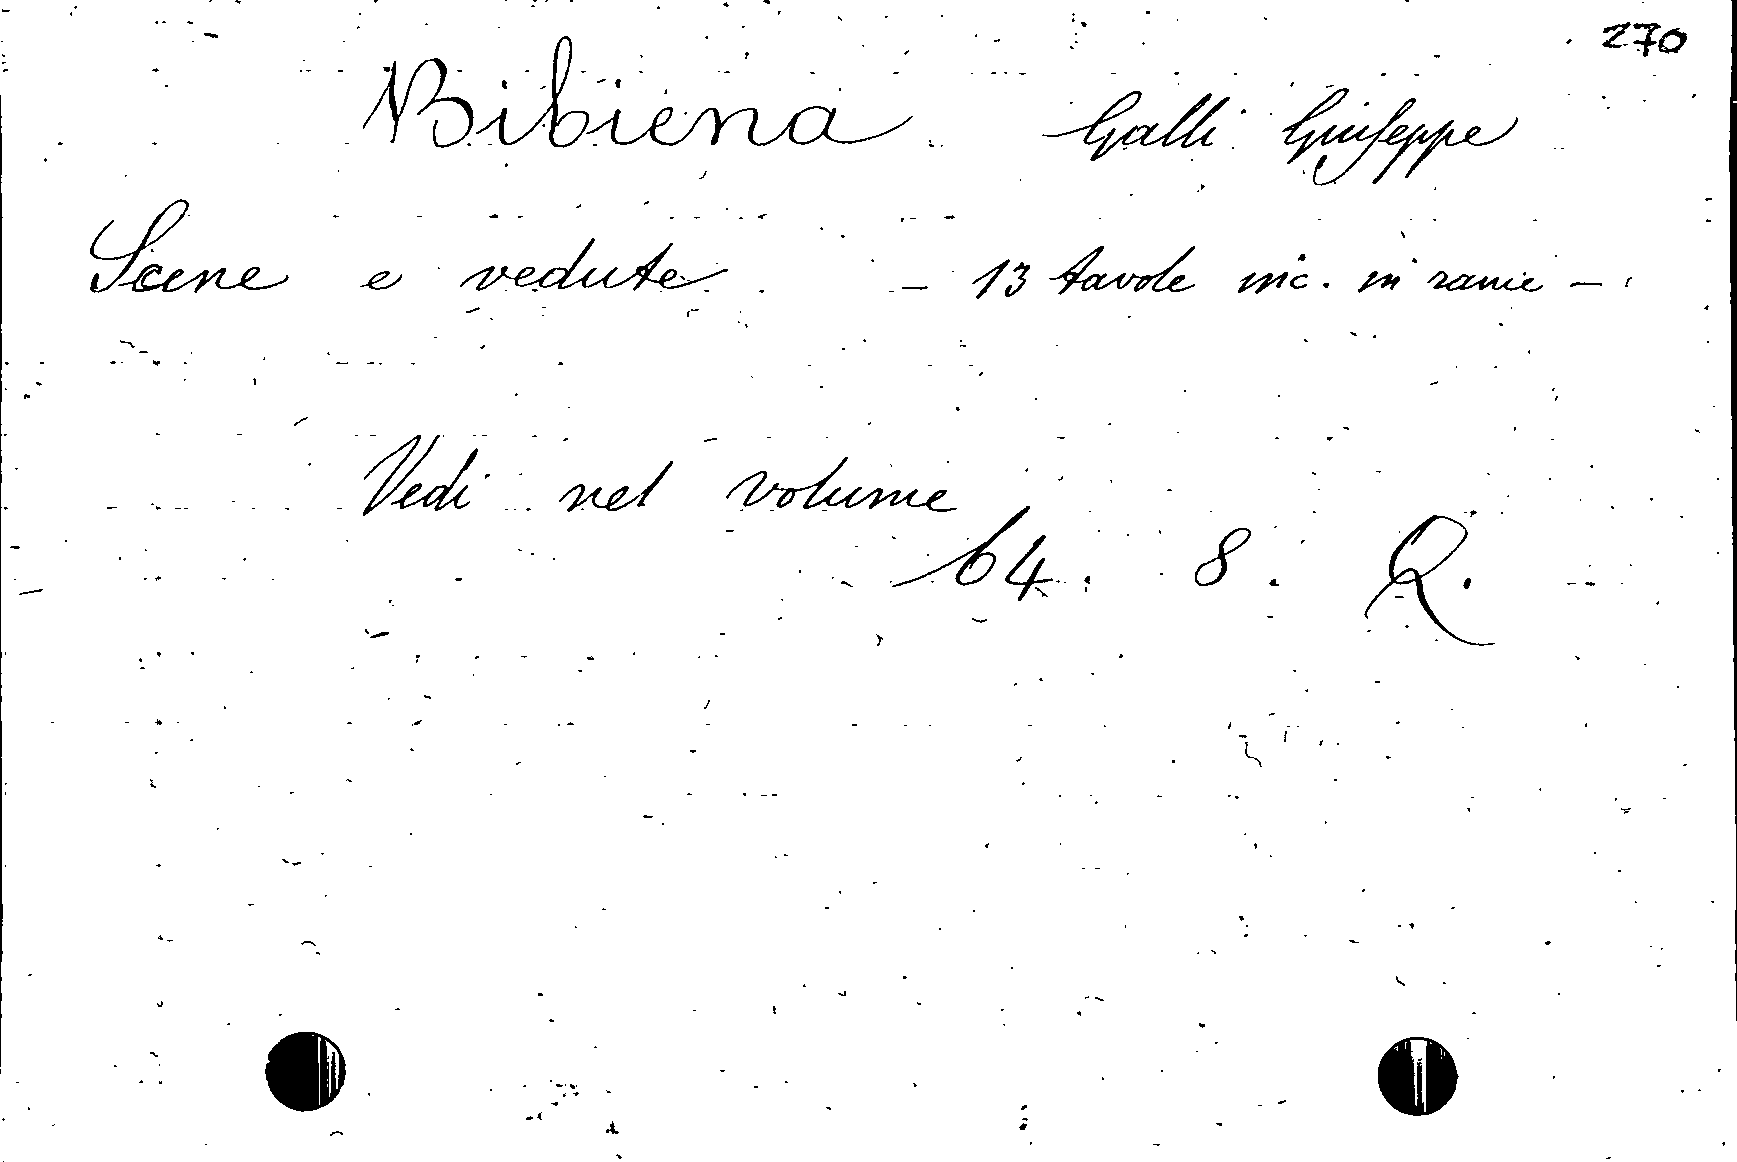 270
Bibiena Galli Giuseppe
Scene e vedute. - 13 tavole inc. in rame -
Vedi nel volume
64. 8. Q.